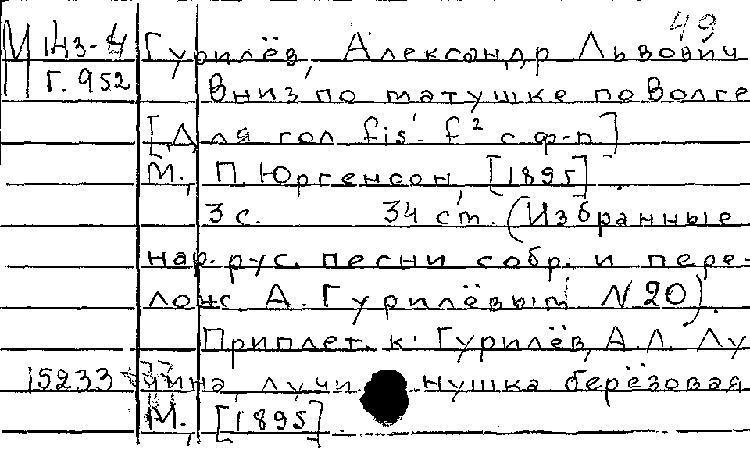 49
М Цз-4 Гурилёв, Александр Львович
Г. 952 Вниз по матушке по Волге
[Для гол fis' f² с ф-п]
М., П. Юргенсон, [1895].
3 с. 34 см. (Избранные
нар. рус. песни собр. и пере-
лож. А. Гурилёвым N 20).
Приплет. к: Гурилёв, А. Л. Лу
15233 чина, лучинушка берёзовая
М., [1895].